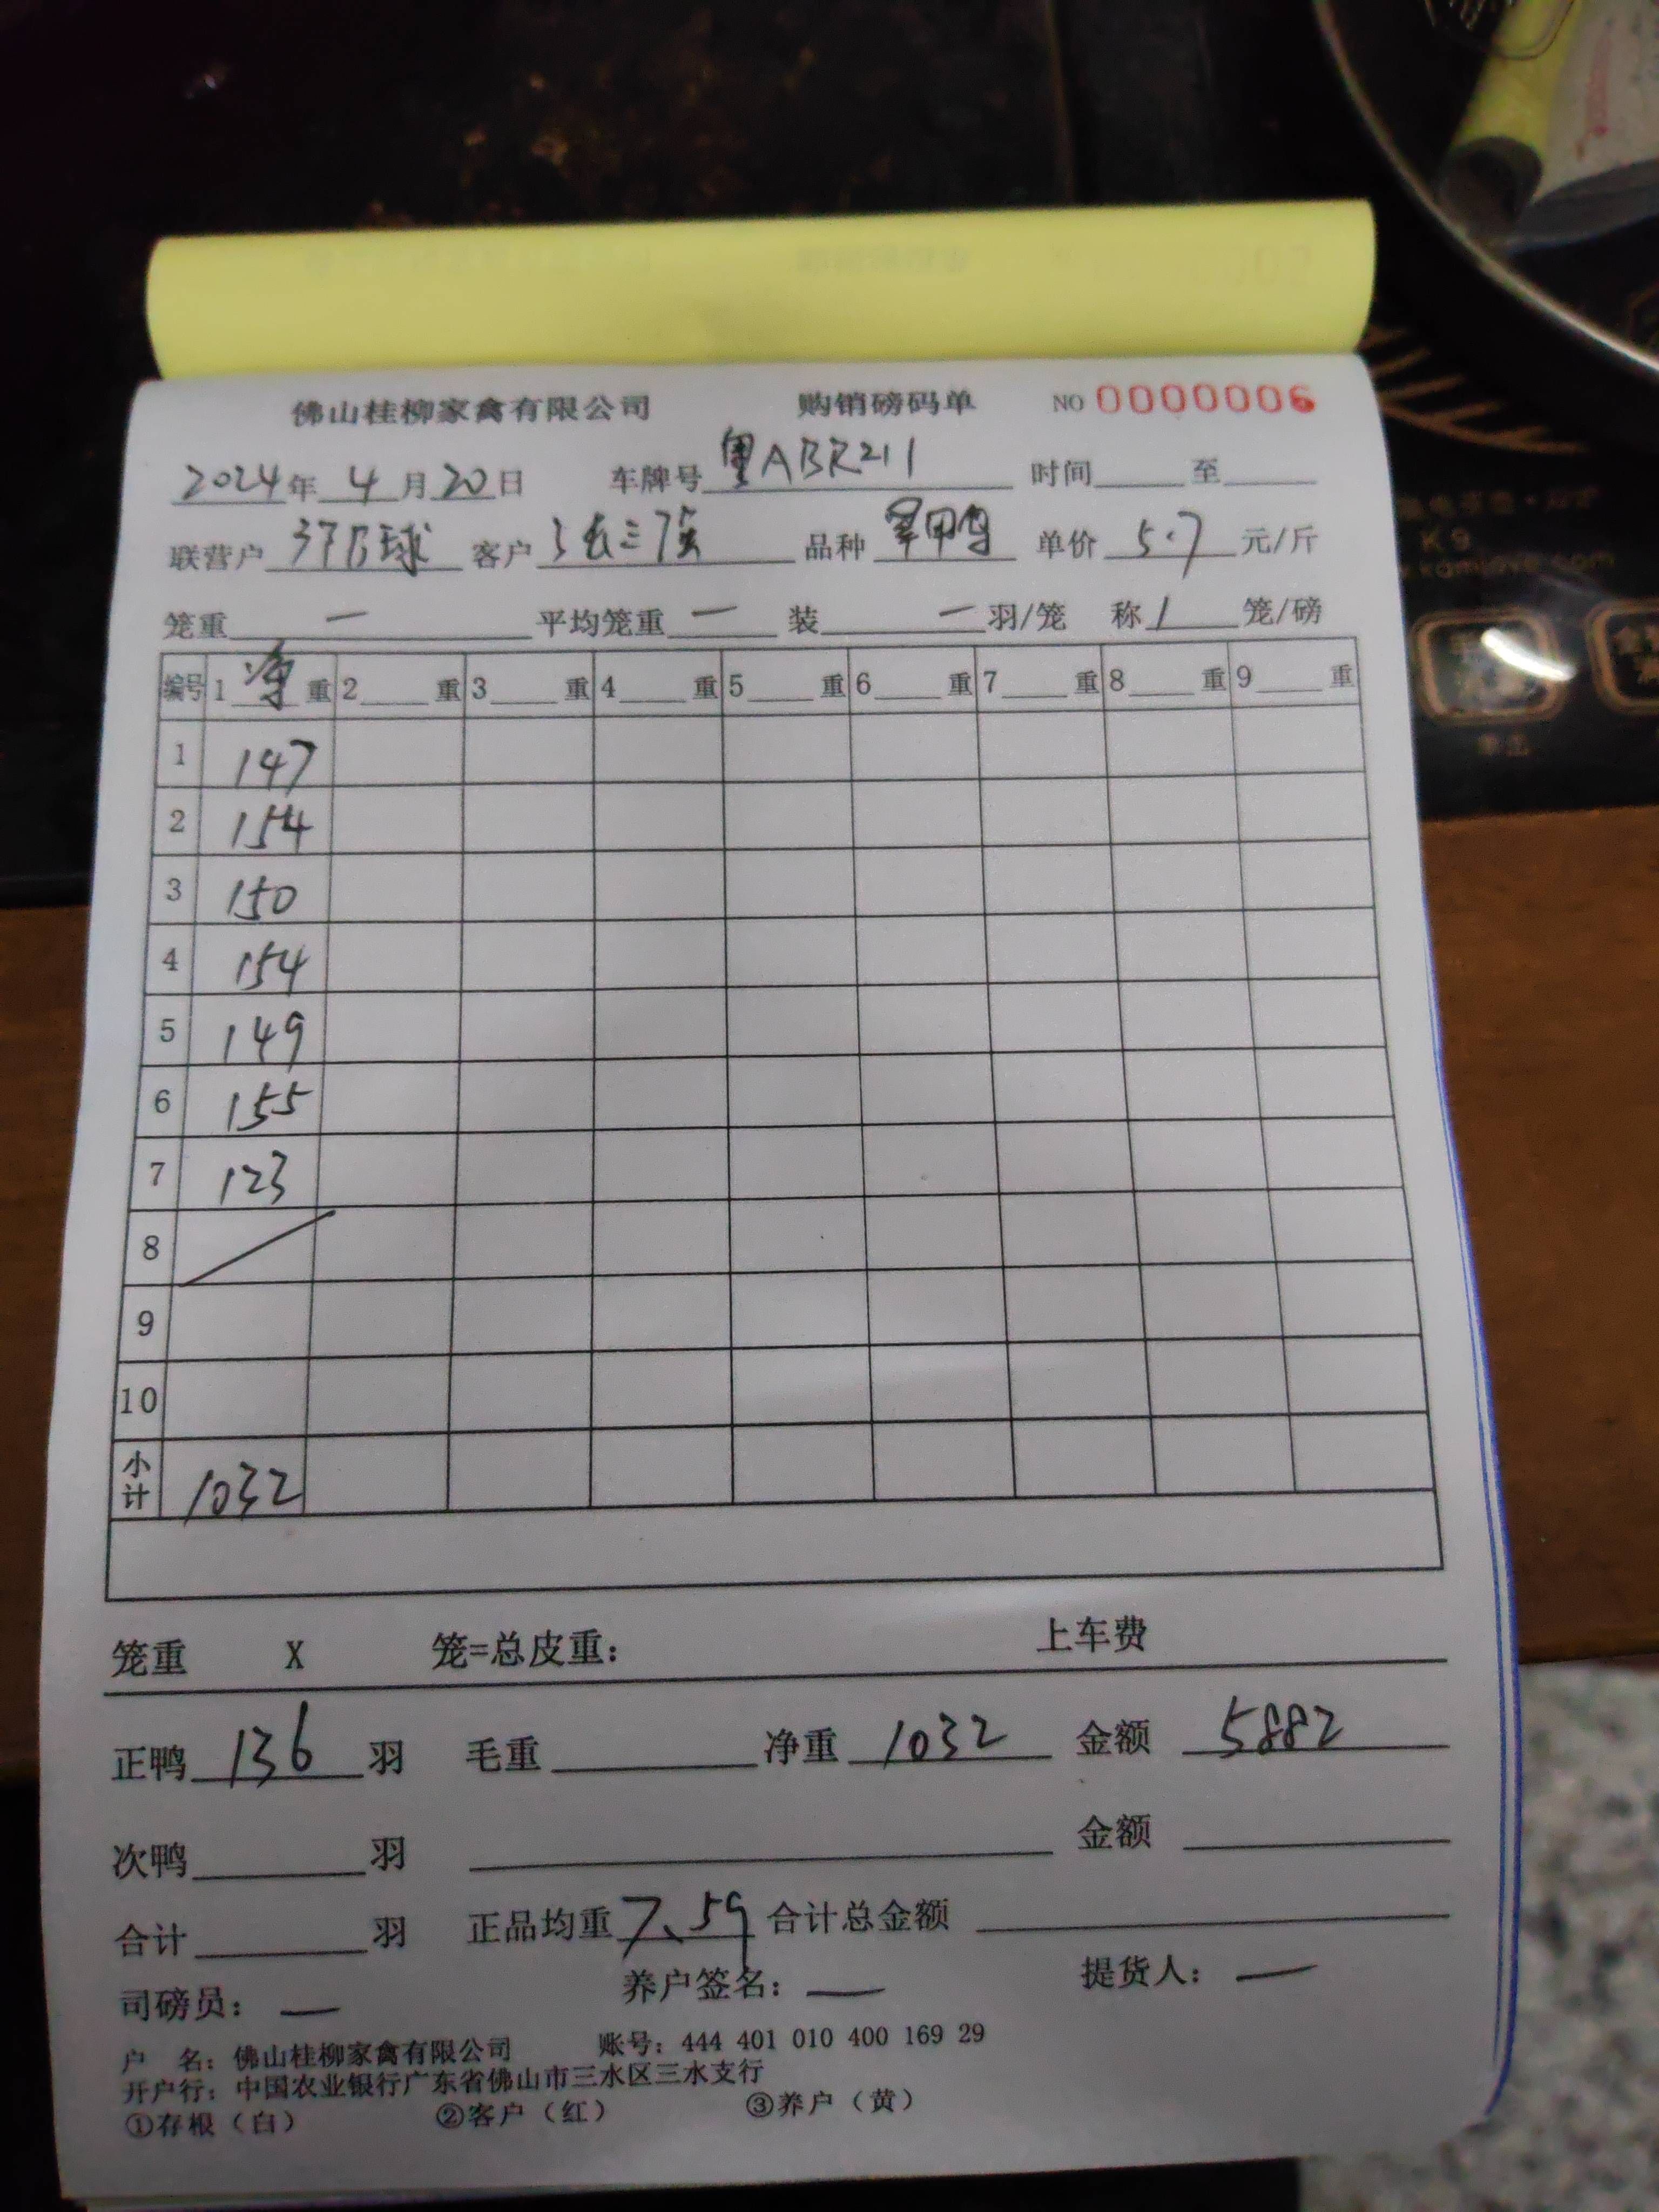 佛山桂柳家禽有限公司 购销磅码单 NO 0000006
2024年 4 月 20 日 车牌号 ABR211 时间 至
联营户 球 客户 张三强 品种 鸭 单价 5.7 元/斤
笼重 一 平均笼重 一 装 一 羽/笼 称 1 笼/磅
编号 1 净 重 2 重 3 重 4 重 5 重 6 重 7 重 8 重 9 重
1 147
2 154
3 150
4 154
5 149
6 155
7 123
8
9
10
小计 1032
笼重 X 笼=总皮重： 上车费
正鸭 136 羽 毛重 净重 1032 金额 5882
次鸭 羽 金额
合计 羽 正品均重 7.59 合计总金额
司磅员： 一 养户签名： 一 提货人： 一
户 名：佛山桂柳家禽有限公司 账号：444 401 010 400 169 29
开户行：中国农业银行广东省佛山市三水区三水支行
①存根（白） ②客户（红） ③养户（黄）